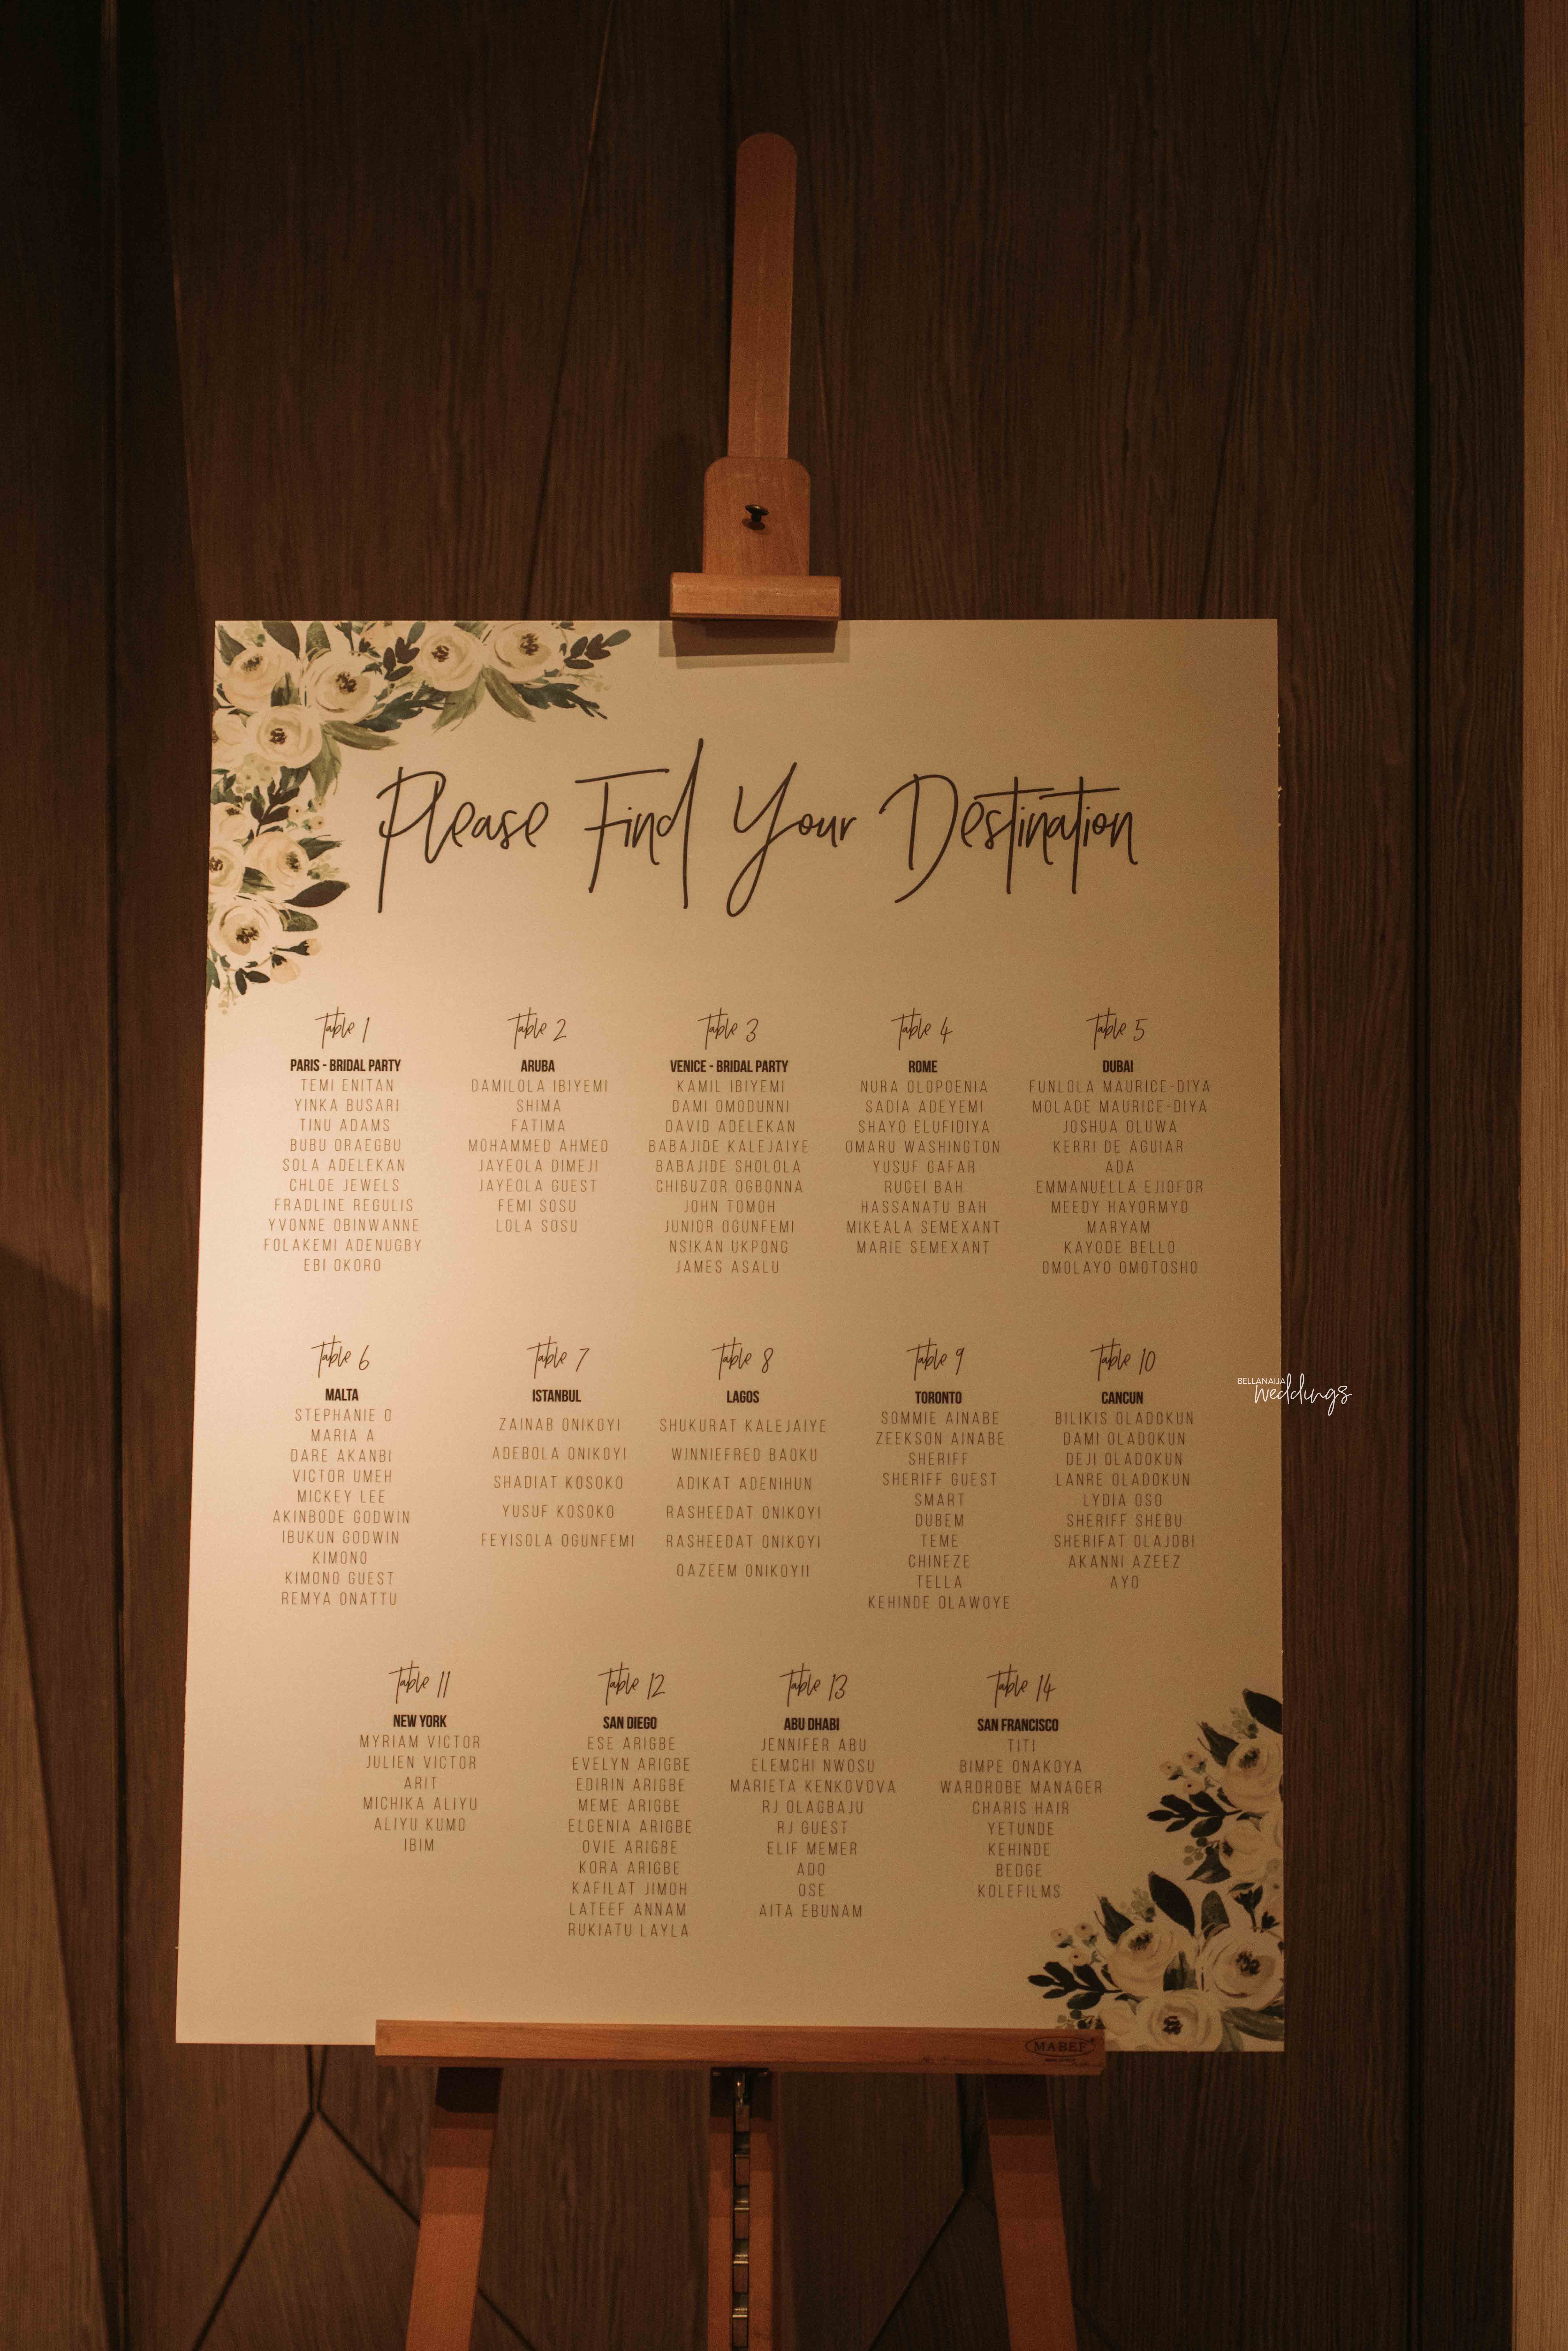 Please Find Your Destination
Table 1
PARIS - BRIDAL PARTY
TEMI ENITAN
YINKA BUSARI
TINU ADAMS
BUBU ORAEGBU
SOLA ADELEKAN
CHLOE JEWELS
FRADLINE REGULIS
YVONNE OBINWANNE
FOLAKEMI ADENUGBY
EBI OKORO
Table 2
ARUBA
DAMILOLA IBIYEMI
SHIMA
FATIMA
MOHAMMED AHMED
JAYEOLA DIMEJI
JAYEOLA GUEST
FEMI SOSU
LOLA SOSU
Table 3
VENICE - BRIDAL PARTY
KAMIL IBIYEMI
DAMI OMODUNNI
DAVID ADELEKAN
BABAJIDE KALEJAIYE
BABAJIDE SHOLOLA
CHIBUZOR OGBONNA
JOHN TOMOH
JUNIOR OGUNFEMI
NSIKAN UKPONG
JAMES ASALU
Table 4
ROME
NURA OLOPOENIA
SADIA ADEYEMI
SHAYO ELUFIDIYA
OMARU WASHINGTON
YUSUF GAFAR
RUGEI BAH
HASSANATU BAH
MIKEALA SEMEXANT
MARIE SEMEXANT
Table 5
DUBAI
FUNLOLA MAURICE-DIYA
MOLADE MAURICE-DIYA
JOSHUA OLUWA
KERRI DE AGUIAR
ADA
EMMANUELLA EJIOFOR
MEEDY HAYORMYD
MARYAM
KAYODE BELLO
OMOLAYO OMOTOSHO
Table 6
MALTA
STEPHANIE O
MARIA A
DARE AKANBI
VICTOR UMEH
MICKEY LEE
AKINBODE GODWIN
IBUKUN GODWIN
KIMONO
KIMONO GUEST
REMYA ONATTU
Table 7
ISTANBUL
ZAINAB ONIKOYI
ADEBOLA ONIKOYI
SHADIAT KOSOKO
YUSUF KOSOKO
FEYISOLA OGUNFEMI
Table 8
LAGOS
SHUKURAT KALEJAIYE
WINNIEFRED BAOKU
ADIKAT ADENIHUN
RASHEEDAT ONIKOYI
RASHEEDAT ONIKOYI
QAZEEM ONIKOYII
Table 9
TORONTO
SOMMIE AINABE
ZEEKSON AINABE
SHERIFF
SHERIFF GUEST
SMART
DUBEM
TEME
CHINEZE
TELLA
KEHINDE OLAWOYE
Table 10
CANCUN
BILIKIS OLADOKUN
DAMI OLADOKUN
DEJI OLADOKUN
LANRE OLADOKUN
LYDIA OSO
SHERIFF SHEBU
SHERIFAT OLAJOBI
AKANNI AZEEZ
AYO
BELLANAIJA
weddings
Table 11
NEW YORK
MYRIAM VICTOR
JULIEN VICTOR
ARIT
MICHIKA ALIYU
ALIYU KUMO
IBIM
Table 12
SAN DIEGO
ESE ARIGBE
EVELYN ARIGBE
EDIRIN ARIGBE
MEME ARIGBE
ELGENIA ARIGBE
OVIE ARIGBE
KORA ARIGBE
KAFILAT JIMOH
LATEEF ANNAM
RUKIATU LAYLA
Table 13
ABU DHABI
JENNIFER ABU
ELEMCHI NWOSU
MARIETA KENKOVOVA
RJ OLAGBAJU
RJ GUEST
ELIF MEMER
ADO
OSE
AITA EBUNAM
Table 14
SAN FRANCISCO
TITI
BIMPE ONAKOYA
WARDROBE MANAGER
CHARIS HAIR
YETUNDE
KEHINDE
BEDGE
KOLEFILMS
MABEF